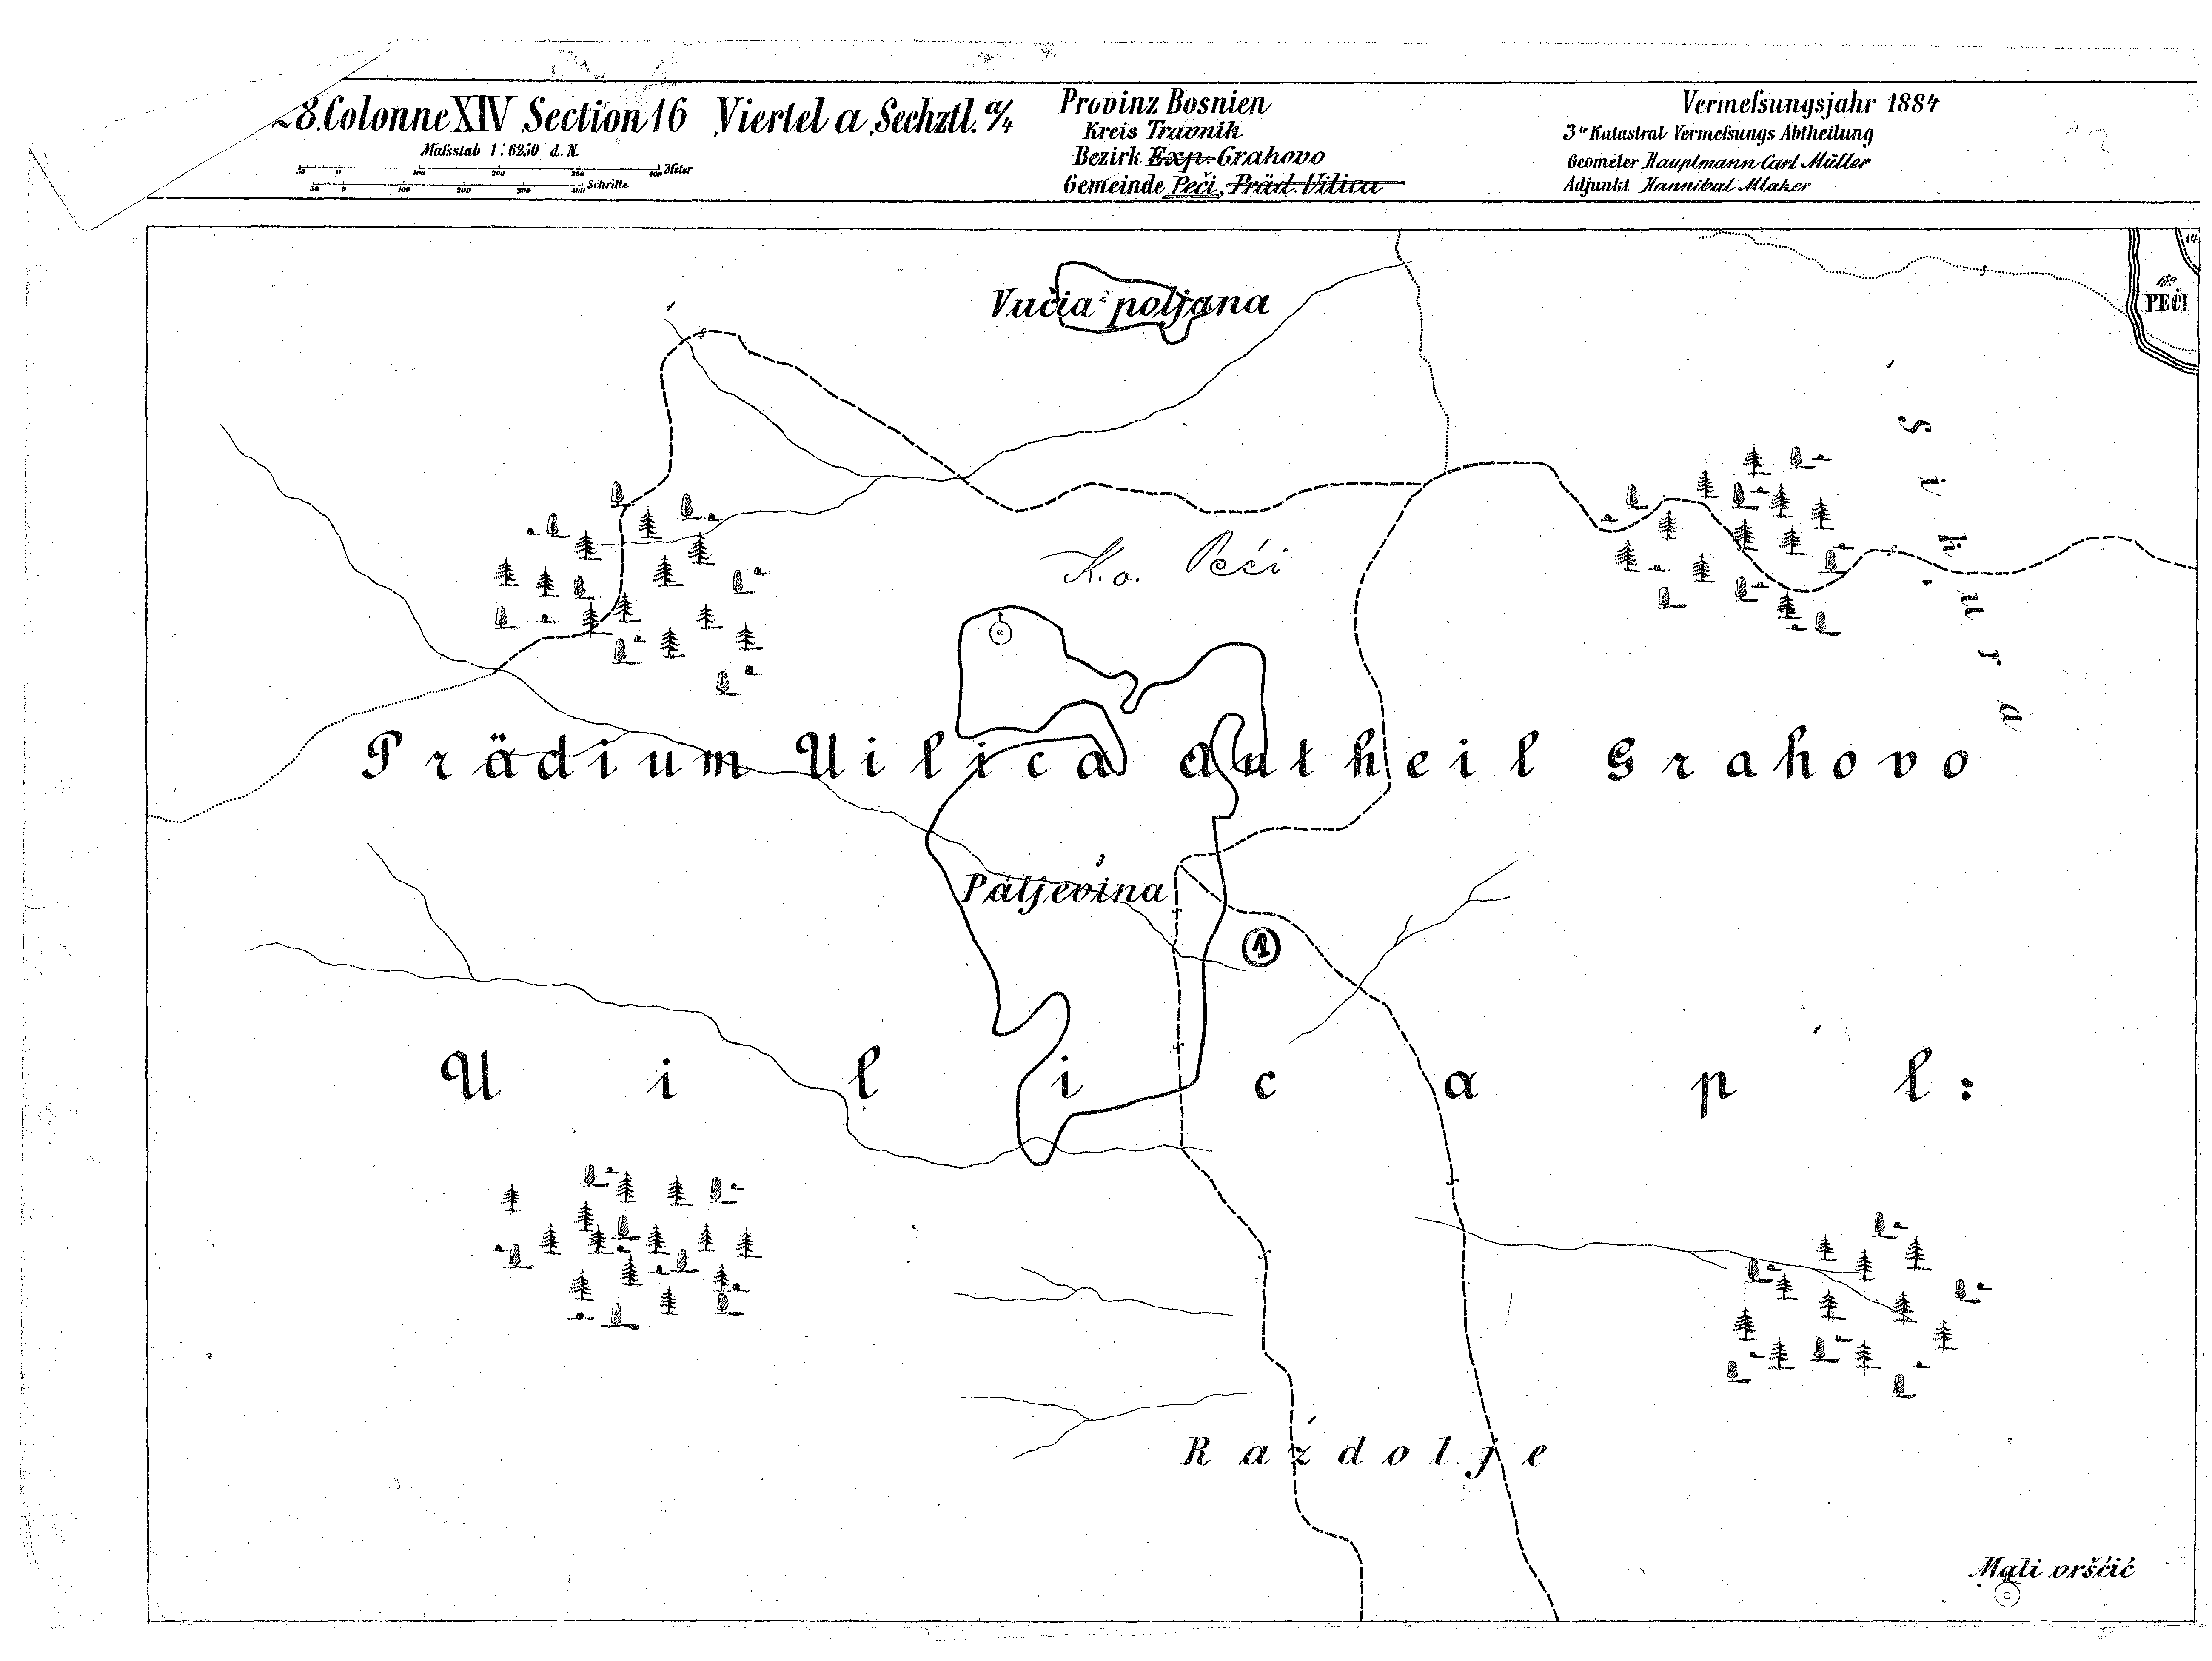 28. Colonne XIV Section 16 Viertel a Sechztl. a/4
Maſsstab 1 : 6250 d. N.
50 0 100 200 300 400 Meter
50 0 100 200 300 400 Schritte
Provinz Bosnien
Kreis Travnik
Bezirk Exp. Grahovo
Gemeinde Peči, Präd. Vilica
Vermeſsungsjahr 1884
3te Katastral Vermeſsungs Abtheilung
Geometer Hauptmann Carl Müller
Adjunkt Hannibal Mlaker
13
14
PEČI
1
Vučia 2 poljana
Sikura
K.o. Peći
Prädium Uilica Antheil Grahovo
3
Paljevina
1
Uilica pl:
Raździolje
Mali vrščić